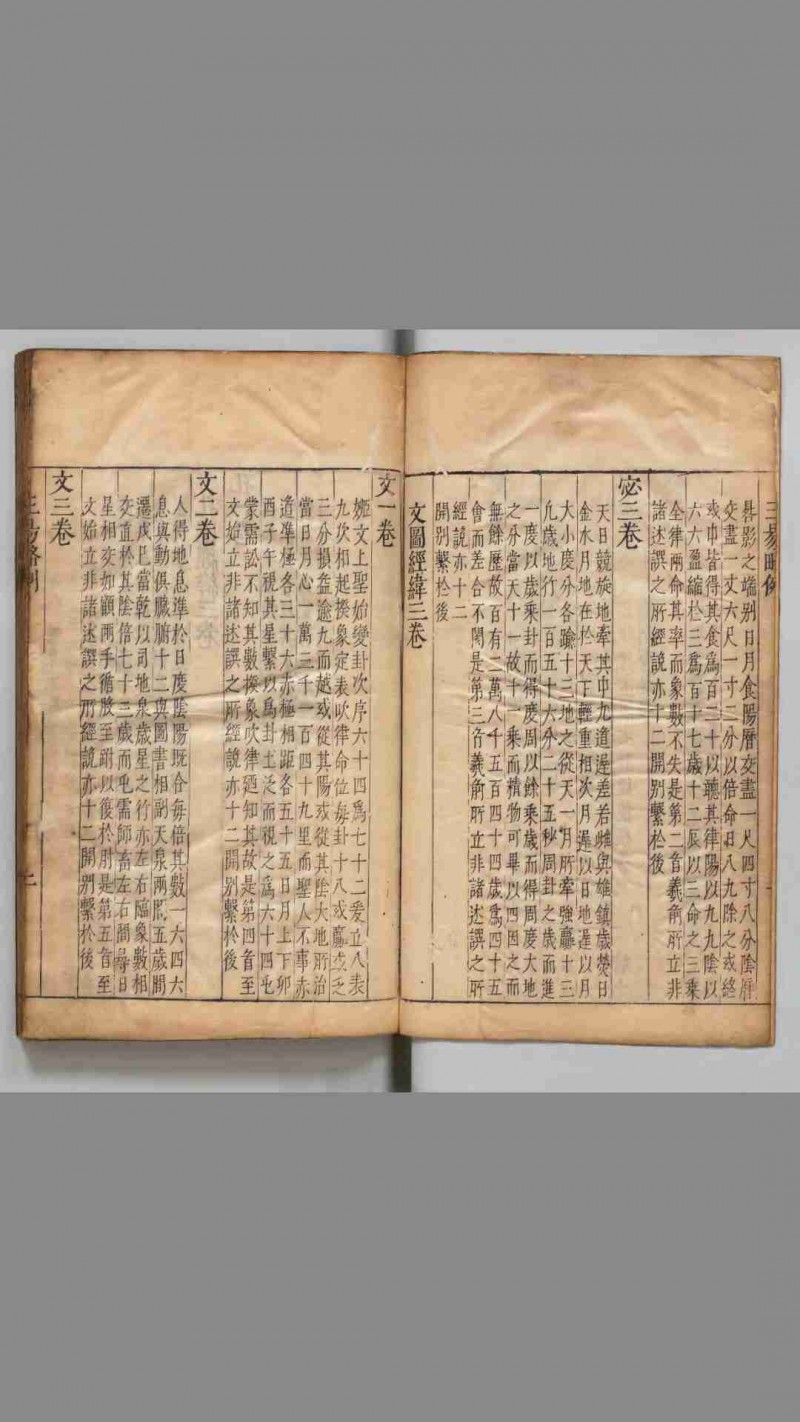 三易畧例
晷影之端别日月食陽曆交盡一尺四寸八分陰曆
交盡一丈六尺一寸二分以倍命日八九除之或終
或中皆得其食爲百二十以聽其律陽以九九陰以
六六盈縮於三爲百十七歲十二辰以三命之三乗
全律兩命其率而象數不失是第二音羲俞所立非
諸述譔之所經說亦十二開别繫於後
宓三卷
天日競旋地牽其中九道遲差若雌與雄鎮歲熒日
金水月地在於天下輕重相次月遲以日地遲以月
大小度分各踰十三地之從天一月所牽強羸十三
九歲地行一百五十六分二十五秒周卦之歲而進
一度以歲乘卦而得度周以餘乘歲而得周度大地
之分當天十一故十一乘而積物可畢以四因之而
無餘歷故百有二萬八千五百四十四歲爲四十五
會而差合不閡是第三音羲俞所立非諸述譔之所
經說亦十二
開别繫於後
文圖經緯三卷
文一卷
姬文上聖始變卦次序六十四爲七十二爰立八表
九次相起揆象定表吹律命位每卦十八或
三分損益逾九而越或從其陽或從其陰大地所治
當日月心一萬三千一百四十九里而聖人不事赤
道準極各三十六赤極相距各五十五日月上下卯
酉子午視其星繫以爲卦土泛而視之爲六十四屯
蒙需訟不知其數揆象吹律廼知其故是第四音至
文始立非諸述譔之所經說亦十二開别繫於後
文二卷
人得地息準於日度陰陽既合每倍其數一六四六
息與動俱臟腑十二與圖書相副天泉兩
五歲閏
遷戊巳當乾以司地泉歲星之行亦左右臨象數相
交直於其陰倍七十三歲而屯需師畜左右閒
日
星相交如顧兩手循肢至跗以復於肘是第五音至
文始立非諸述譔之所經說亦十二開别繫於後
文三卷